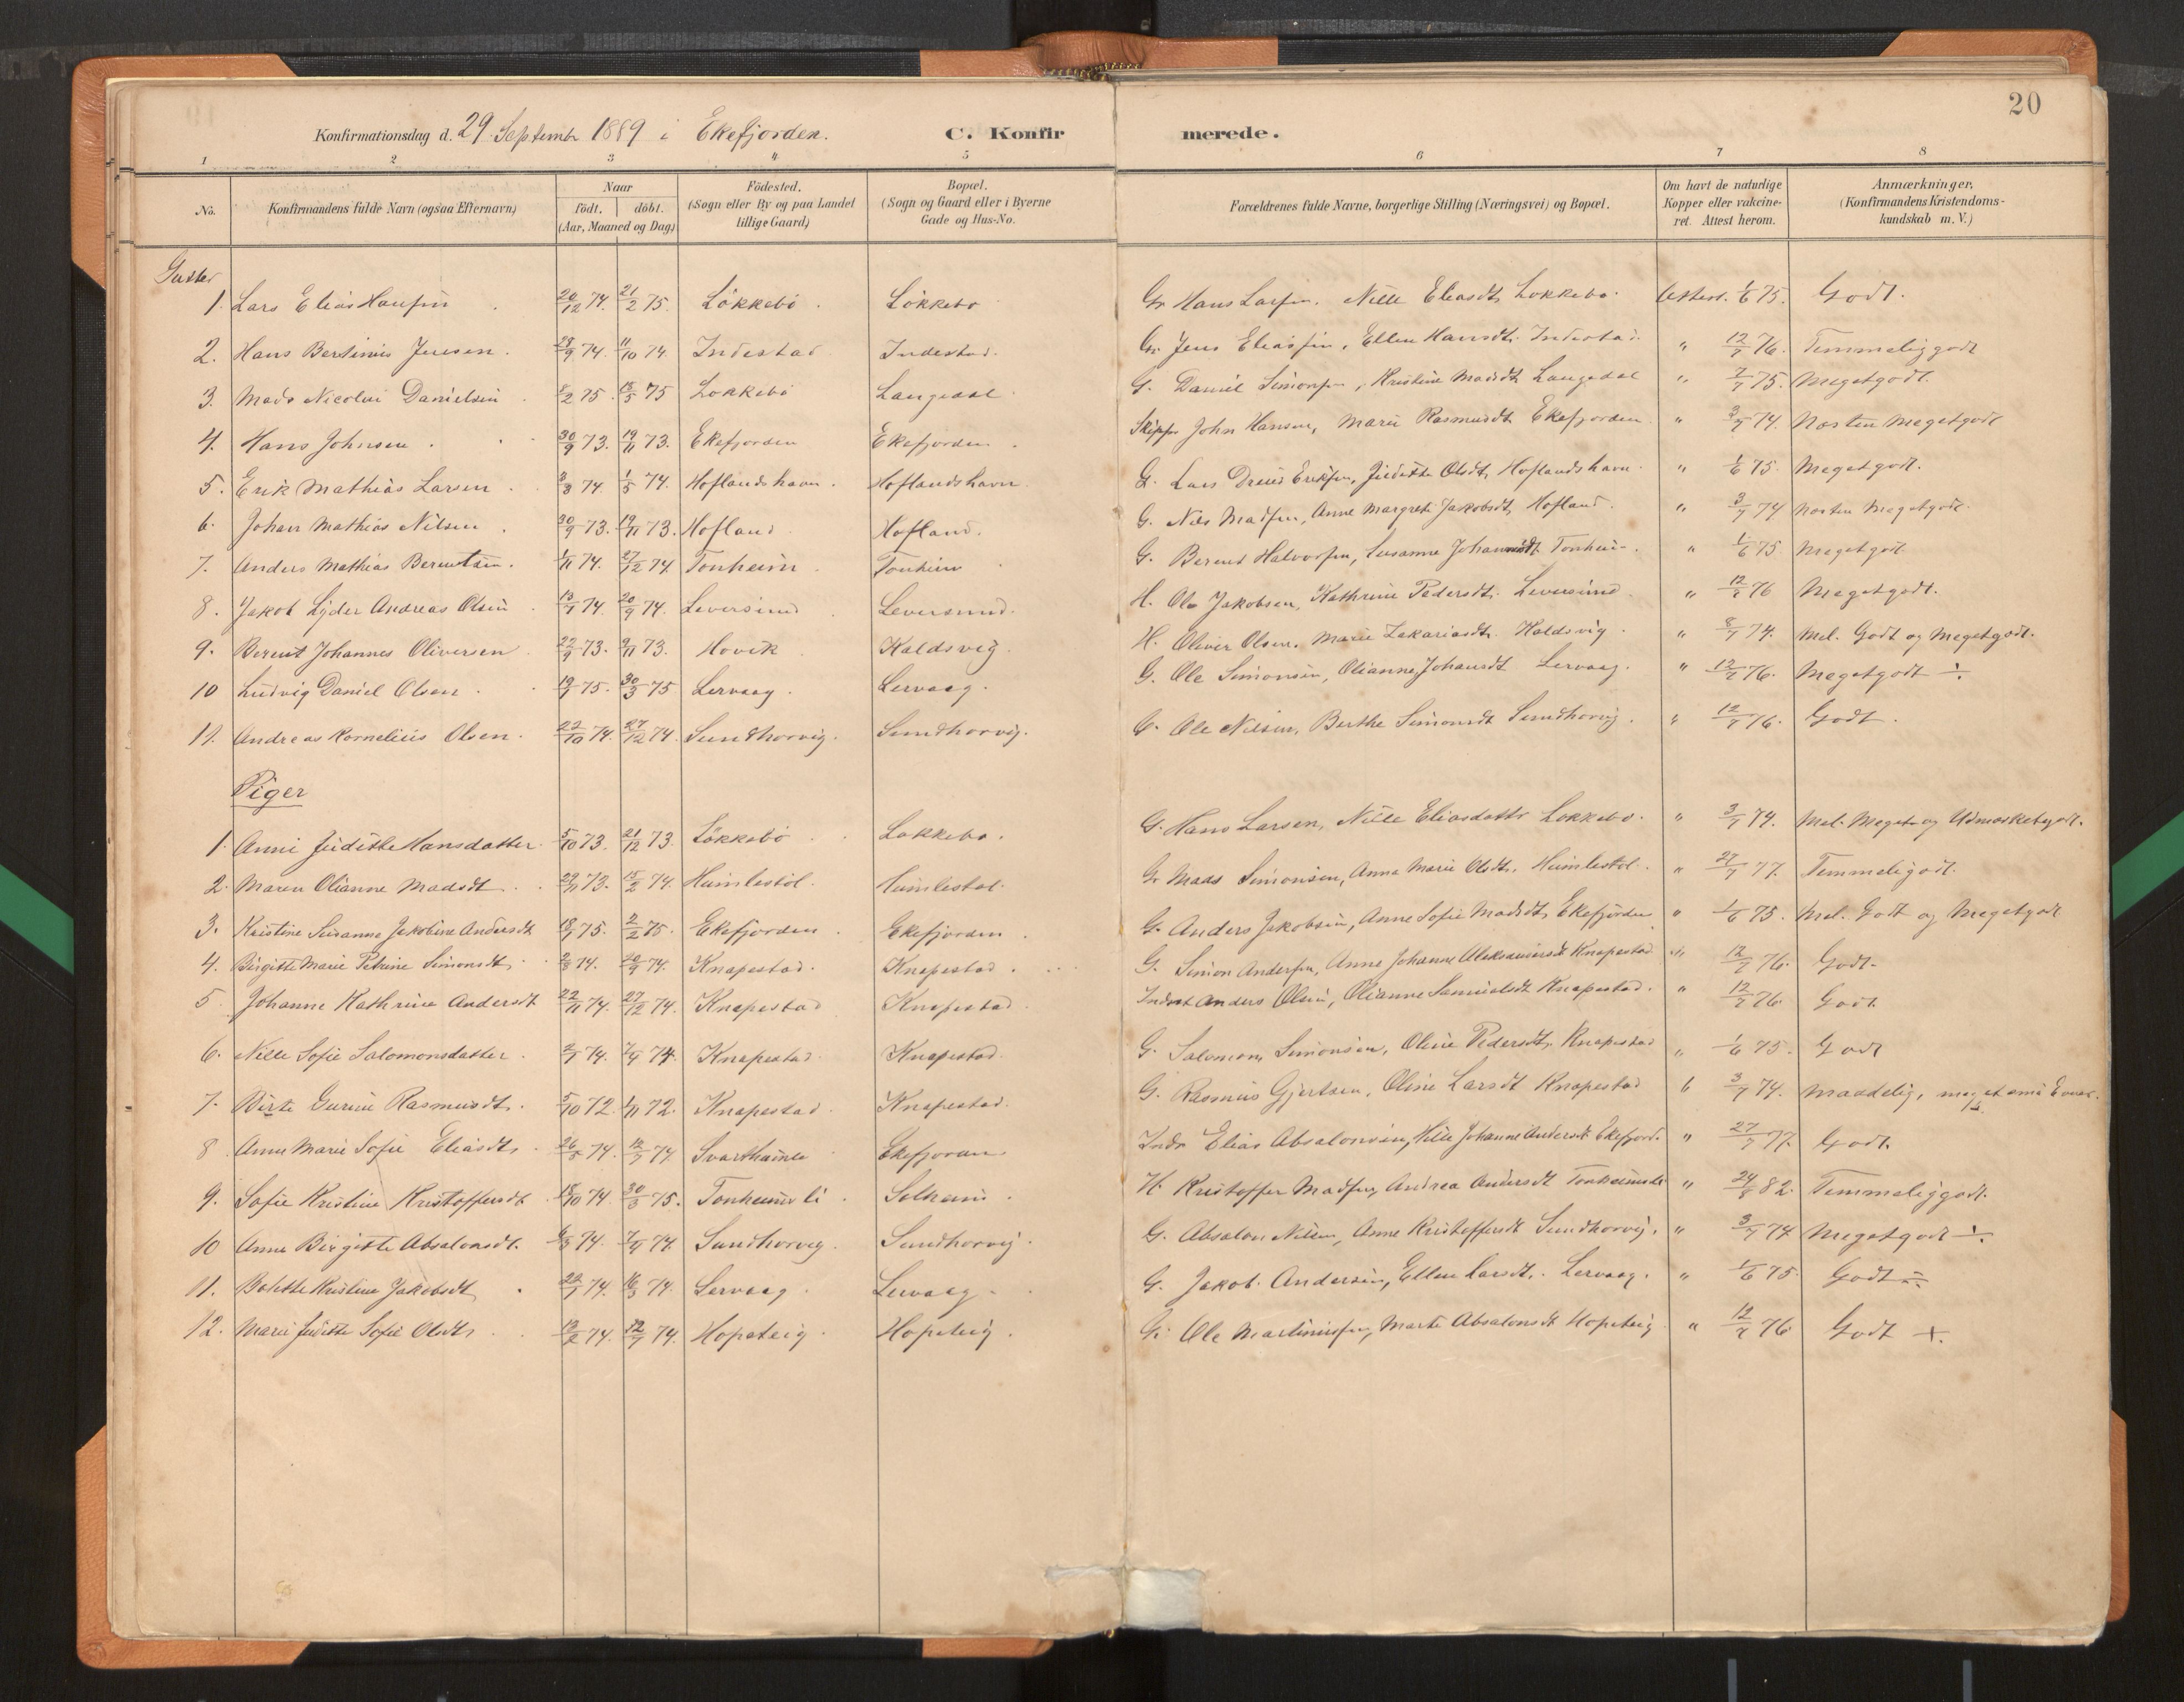 20
Konfirmationsdag d. 29 September 1889 i Ekefjorden. C. Konfirmerede.
1 2 3 4 5 6 7 8
No. Konfirmandens fulde Navn (ogsaa Efternavn) Naar födt. döbt. (Aar, Maaned og Dag) Födested. (Sogn eller By og paa Landet tillige Gaard) Bopæl. (Sogn og Gaard eller i Byerne Gade og Hus-No. Forældrenes fulde Navne, borgerlige Stilling (Næringsvei) og Bopæl. Om havt de naturlige Kopper eller vakcineret. Attest herom. Anmærkninger, (Konfirmandens Kristendomskundskab m. V.)
Gutter
1. Lars Elias Hansen 20/12 74. 21/2 75. Lökkebö. Lökkebo Gr Hans Larsen. Nille Eliasdt, Lokkebo. Attest. 1/6 75. Godt.
2. Hans Bertinus Jensen. 28/9 74. 11/10 74. Indestad Indestad. Gr. Jens Eliassen, Ellen Hansdt. Indestad. " 12/7 76. Temmelig godt
3. Mads Nicolai Danielsen 8/2 75. 15/5 75 Lokkebö Langedal. G. Daniel Simonsen, Kristine Madsdt, Langedal " 7/7 75. Megetgodt.
4. Hans Johnsen. 30/9 73. 19/11 73. Ekefjorden Ekefjorden. Skipper John Hansen, Marie Rasmusdt. Ekefjorden. " 3/7 74. Næsten megetgodt
5. Erik Mathias Larsen. 3/3 74. 1/5 74. Hoflandshavn. Hoflandshavn. G. Lars Dreies Eriksen, Judithe Olsdt, Hoflandshavn. " 1/6 75. Megetgodt.
6. Johan Mathias Nilsen. 30/9 73. 19/11 73. Hofland Hofland. G. Nils Madsen, Anne Margrete Jakobsdt, Hofland. " 3/7 74 Næsten Megetgodt.
7. Anders Mathias Berentsen. 1/11 74. 27/12 74. Tonheim. Tonheim G. Berent Halvorsen, Susanne Johannesdt Tonheim. " 1/6 75 Megetgodt.
8. Jakob Lyder Andreas Olsen 13/7 74. 20/9 74. Leversund Leversund. H. Ole Jakobsen, Kathrine Pedersdt. Leversund. " 12/7 76 Megetgodt.
9. Berent Johannes Oliversen 22/9 73. 9/11 73. Hovik Kaldsvig. H. Oliver Olsen. Marie Zakariasdt. Kaldsvig. " 8/7 74. Mel. Godt og Megetgodt.
10 Ludvig Daniel Olsen. 19/1 75. 30/3 75 Lervaag. Lervaag. G. Ole Simonsen, Olianne Johansdt Lervaag. " 12/7 76. Megetgodt ÷
11. Andreas Kornelius Olsen. 22/10 74. 27/12 74. Sundhorvig. Sundhorvig. G. Ole Nilsen, Berthe Simonsdt Sundhorvig. " 12/7 76. Godt.
Piger
1. Anne Judithe Hansdatter. 5/10 73. 21/12 73. Lökkebö Lokkebo. G. Hans Larsen, Nille Eliasdatter Lokkebo. " 3/7 74. Mel. Meget og Udmærketgodt.
2. Maren Olianne Madsdt. 29/11 73. 15/2 74. Humlestöl. Humlestol. Gr Mads Simonsen, Anne Marie Olsdt, Humlestol. " 27/7 77. Temmeligodt.
3. Kristine Susanne Jakobine Andersdt 18/1 75. 2/2 75. Ekefjorden. Ekefjorden. G. Anders Jakobsen, Anne Sofie Madsdt, Ekefjorden " 1/6 75. Mel. Godt og Megetgodt
4. Birgitte Marie Petrine Simonsdt. 2/8 74. 20/9 74. Knapestad. Knapestad. G. Simon Andersen, Anne Johanne Aleksandersdt Knapestad " 12/7 76. Godt.
5 Johanne Kathrine Andersdt 22/11 74. 27/12 74. Knapestad Knapestad. Inderst Anders Olsen, Olianne Samuelsdt Knapestad. " 12/7 76 Godt.
6. Nille Sofie Salomonsdatter. 2/1 74. 7/4 74. Knapestad. Knapestad. G. Salomon Simonsen, Oline Pedersdt, Knapestad " 1/6 75. Godt
7. Birte Gurine Rasmusdt. 5/10 72. 1/11 72. Knapestad. Knapestad. G. Rasmus Gjertsen, Oline Larsdt Knapestad " 3/7 74. Maadelig, meget smaa Evner.
8 Anne Marie Sofie Eliasdt. 26/5 74. 12/7 74. Svarthumle Ekefjorden Inds Elias Absalonsen, Nille Johanne Andersdt Ekefjord. " 27/7 77. Godt.
9. Sofie Kristine Kristoffersdt. 18/10 74. 30/3 75. Tonheimsli. Solheim. H. Kristoffer Madsen, Andrea Andersdt Tonheimsli " 24/8 82. Temmeliggodt.
10 Anne Birgitte Absalonsdt. 6/3 74. 7/4 74. Sundhorvig. Sundhorvig. G. Absalon Nilsen, Anne Kristoffersdt Sundhorvig. " 3/7 74 Megetgodt ÷
11. Bolette Kristine Jakobsdt. 22/1 74. 16/3 74. Lervaag. Lervaag. G. Jakob Andersen, Ellen Larsdt, Lervaag. " 1/6 75. Godt ÷
12. Marie Judithe Sofie Olsdt. 13/2 74. 12/7 74. Hopeteig. Hopeteig. G. Ole Martinussen, Marte Absalonsdt Hopeteig " 12/7 76. Godt +.